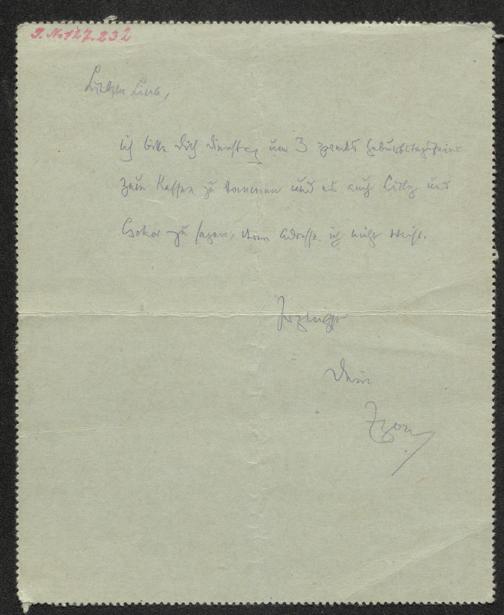 I. N. 127.232
Liebe Lina,
ich bitte Dich Dienstag um 3 zwecks Geburtstagsfeier
zum Kaffee zu kommen und es auch Lilly und
Csokor zu sagen, deren Adresse ich nicht weiß.
Herzlichst
Dein
Egon